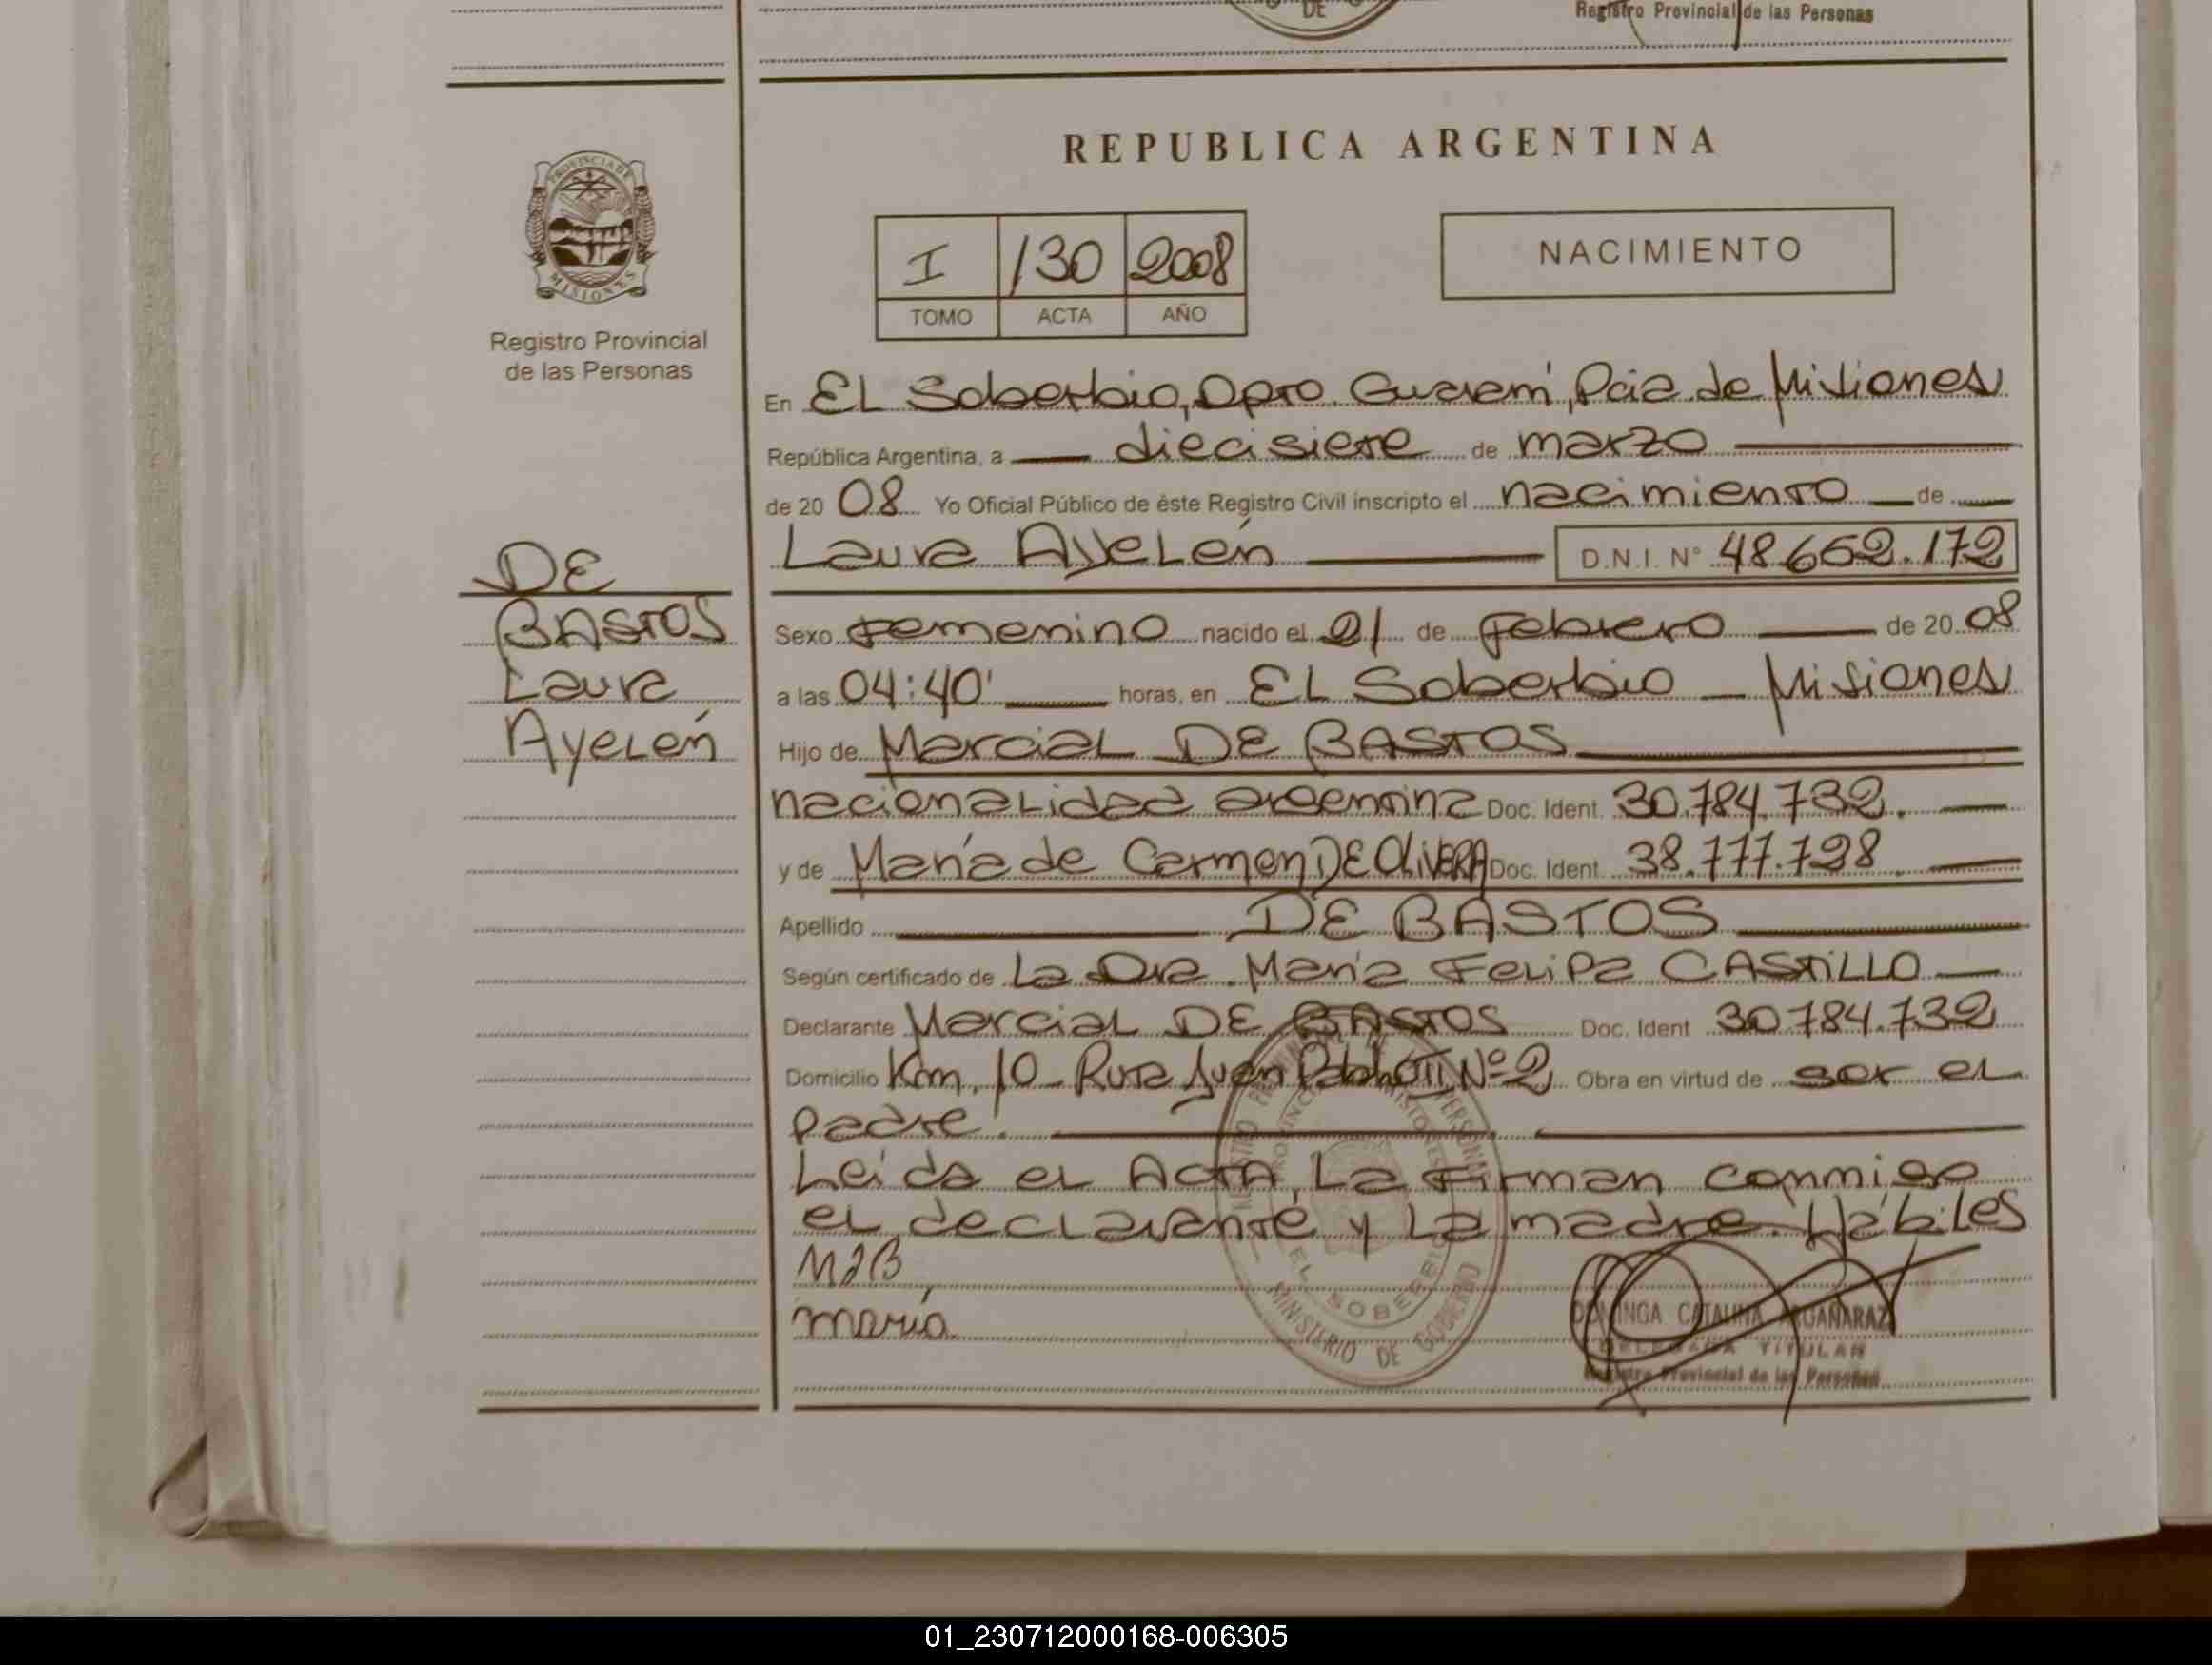 DE
Registro Provincial de las Personas
PROVINCIA DE
MISIONES
Registro Provincial
de las Personas
REPUBLICA ARGENTINA
I 130 2008
TOMO ACTA AÑO
NACIMIENTO
En EL Soberbio, Dpto. Guaraní, Pcia de Misiones
República Argentina, a diecisiete de marzo
de 20 08 Yo Oficial Público de éste Registro Civil inscripto el nacimiento de
Laura Ayelén D.N.I. N° 48.652.172
DE
BASTOS
Laura
Ayelén
Sexo Femenino nacido el 21 de Febrero de 20 08
a las 04:40' horas, en EL Soberbio - Misiones
Hijo de Marcial DE BASTOS
nacionalidad argentina Doc. Ident. 30.784.732.
y de María de Carmen DE OLIVERA Doc. Ident. 38.777.728
Apellido DE BASTOS
Según certificado de La Dra. María Felipa CASTILLO
Declarante Marcial DE BASTOS Doc. Ident 30784.732
Domicilio Km. 10 - Ruta Juan Pablo II, Nº 2 Obra en virtud de ser el
padre.
Leida el Acta, La Firman conmigo
el declarante y La madre. Hábiles
MDB
maría
EL SOBERBIO
MINISTERIO DE GOBIERNO
DOMINGA CATALINA ARGAÑARAZ
DELEGADA TITULAR
Registro Provincial de las Personas
01_230712000168-006305